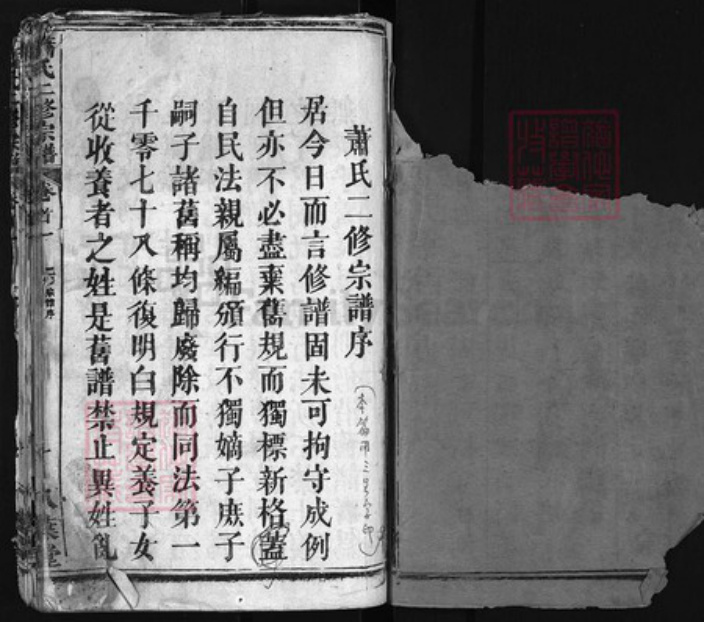 蕭氏二修宗譜序
居今日而言修譜固未可拘守成例
但亦不必盡棄舊規而獨標新格蓋
自民法親屬編頒行不獨嫡子庶子
嗣子諸舊稱均歸廢除而同法第一
千零七十八條復明白規定養子女
從收養者之姓是舊譜禁止異姓亂
蕭氏二修宗譜 卷首一